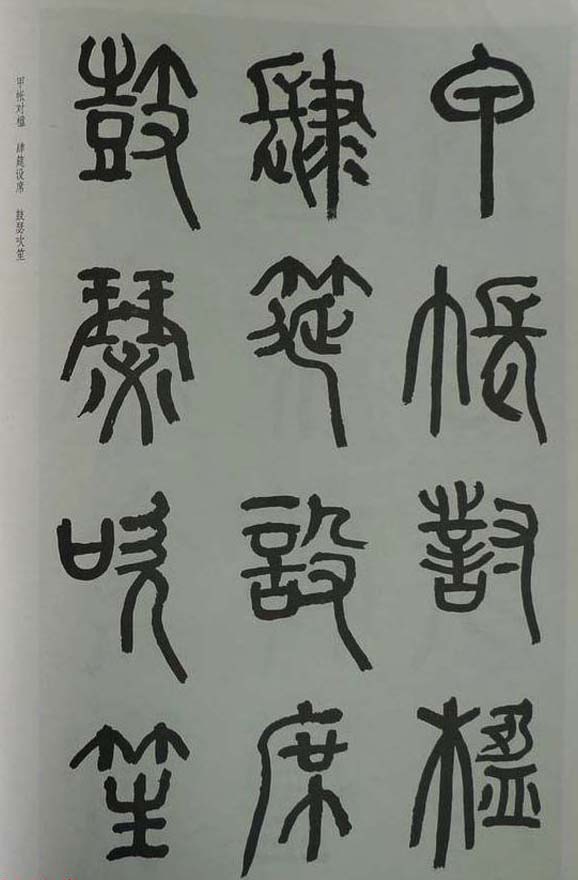 甲帳對楹
肆筵設席
鼓瑟吹笙
甲帐对楹 肆筵设席 鼓瑟吹笙